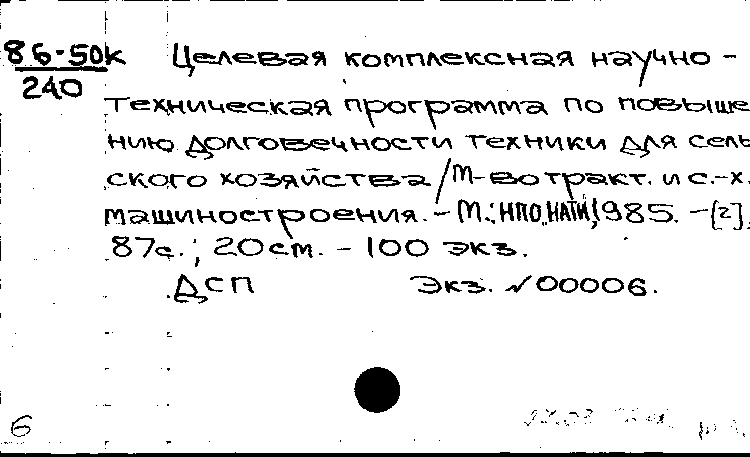 86-50к Целевая комплексная научно-
240
техническая программа по повыше
нию долговечности техники для сель
ского хозяйства / М-во тракт. и с.-х.
машиностроения. - М.: НПО НАТИ, 1985. - [2],
87с.; 20см. - 100 экз.
ДСП Экз. №00006.
6